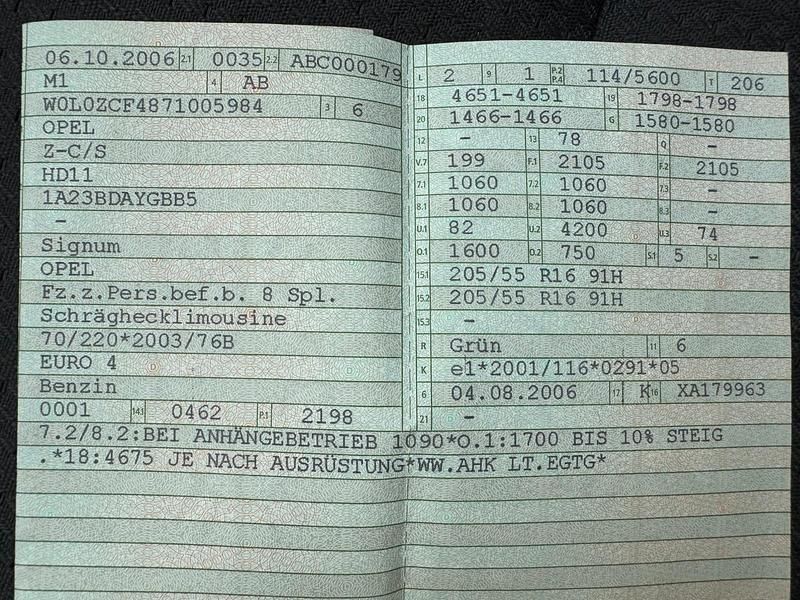 06.10.2006 2.1 0035 2.2 ABC000179
M1 4 AB
W0L0ZCF4871005984 3 6
OPEL
Z-C/S
HD11
1A23BDAYGBB5
–
Signum
OPEL
Fz.z.Pers.bef.b. 8 Spl.
Schräghecklimousine
70/220*2003/76B
EURO 4
Benzin
0001 14.1 0462 P.1 2198
L 2 9 1 P.2 P.4 114/5600 T 206
18 4651-4651 19 1798-1798
20 1466-1466 G 1580-1580
12 – 13 78 Q –
V.7 199 F.1 2105 F.2 2105
7.1 1060 7.2 1060 7.3 –
8.1 1060 8.2 1060 8.3 –
U.1 82 U.2 4200 U.3 74
O.1 1600 O.2 750 S.1 5 S.2 –
15.1 205/55 R16 91H
15.2 205/55 R16 91H
15.3 –
R Grün 11 6
K e1*2001/116*0291*05
6 04.08.2006 17 K 16 XA179963
21 –
7.2/8.2:BEI ANHÄNGEBETRIEB 1090*O.1:1700 BIS 10% STEIG
.*18:4675 JE NACH AUSRÜSTUNG*WW.AHK LT.EGTG*